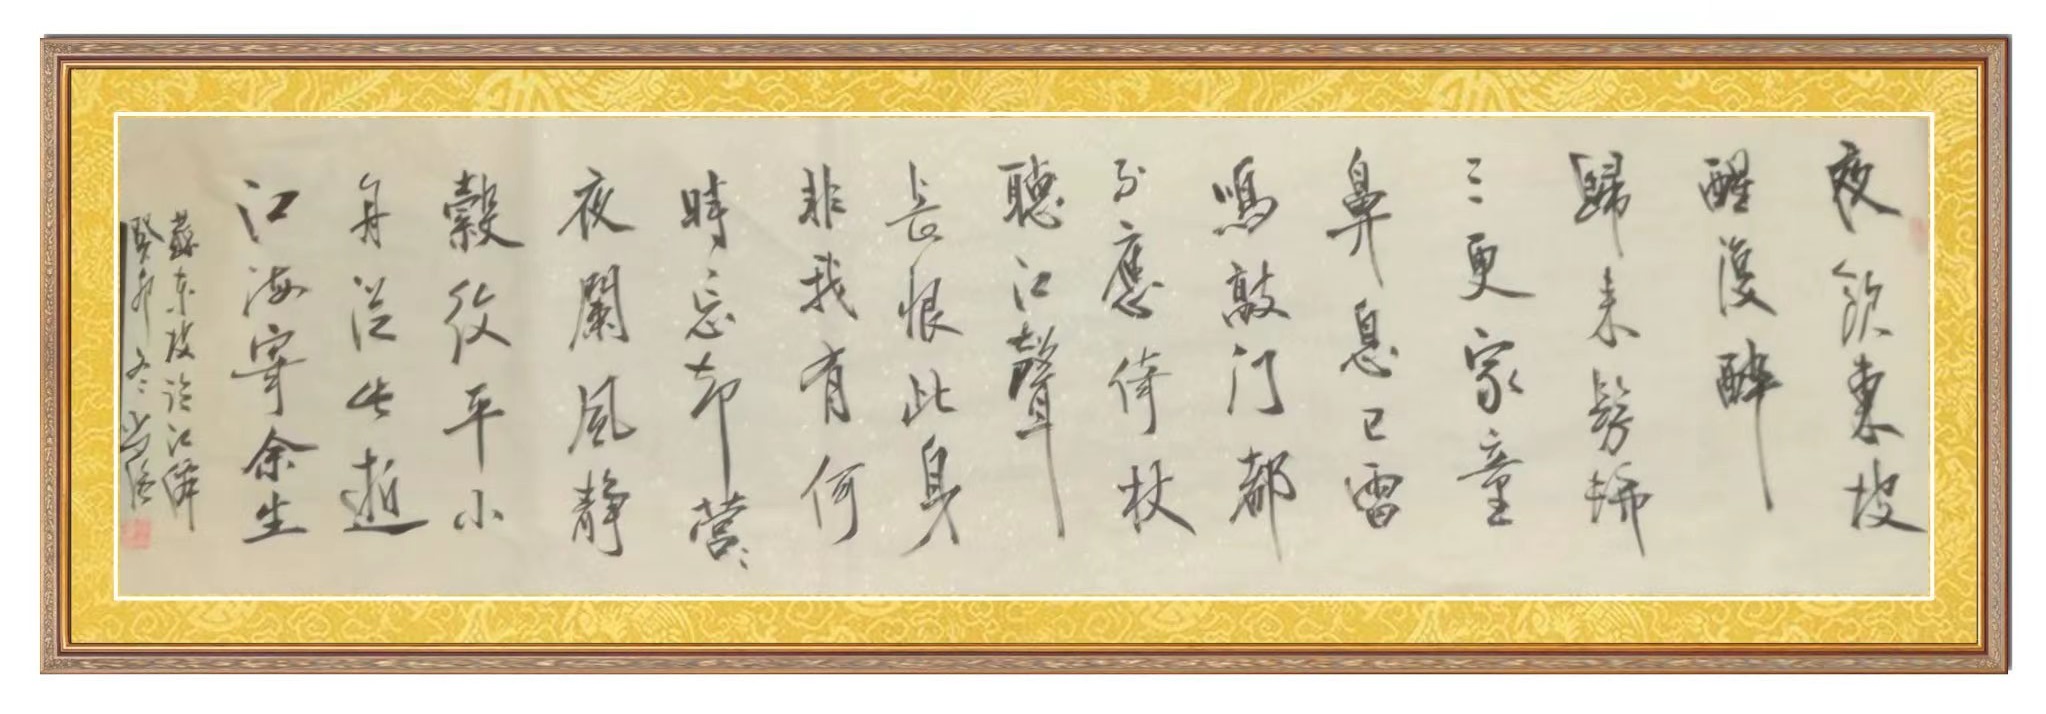 夜飲東坡
醒復醉
歸来髣髴
三更家童
鼻息已雷
鳴敲门都
不應倚杖
聽江聲
長恨此身
非我有何
時忘却营〻
夜闌風静
縠紋平小
舟从此逝
江海寄余生
蘇東坡臨江
癸卯冬